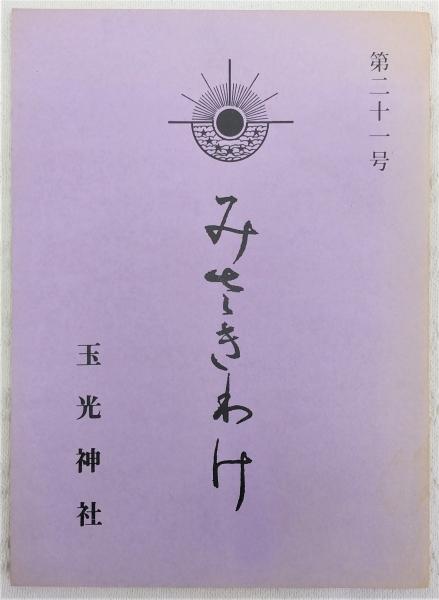 第二十一号
みさきわけ
玉光神社